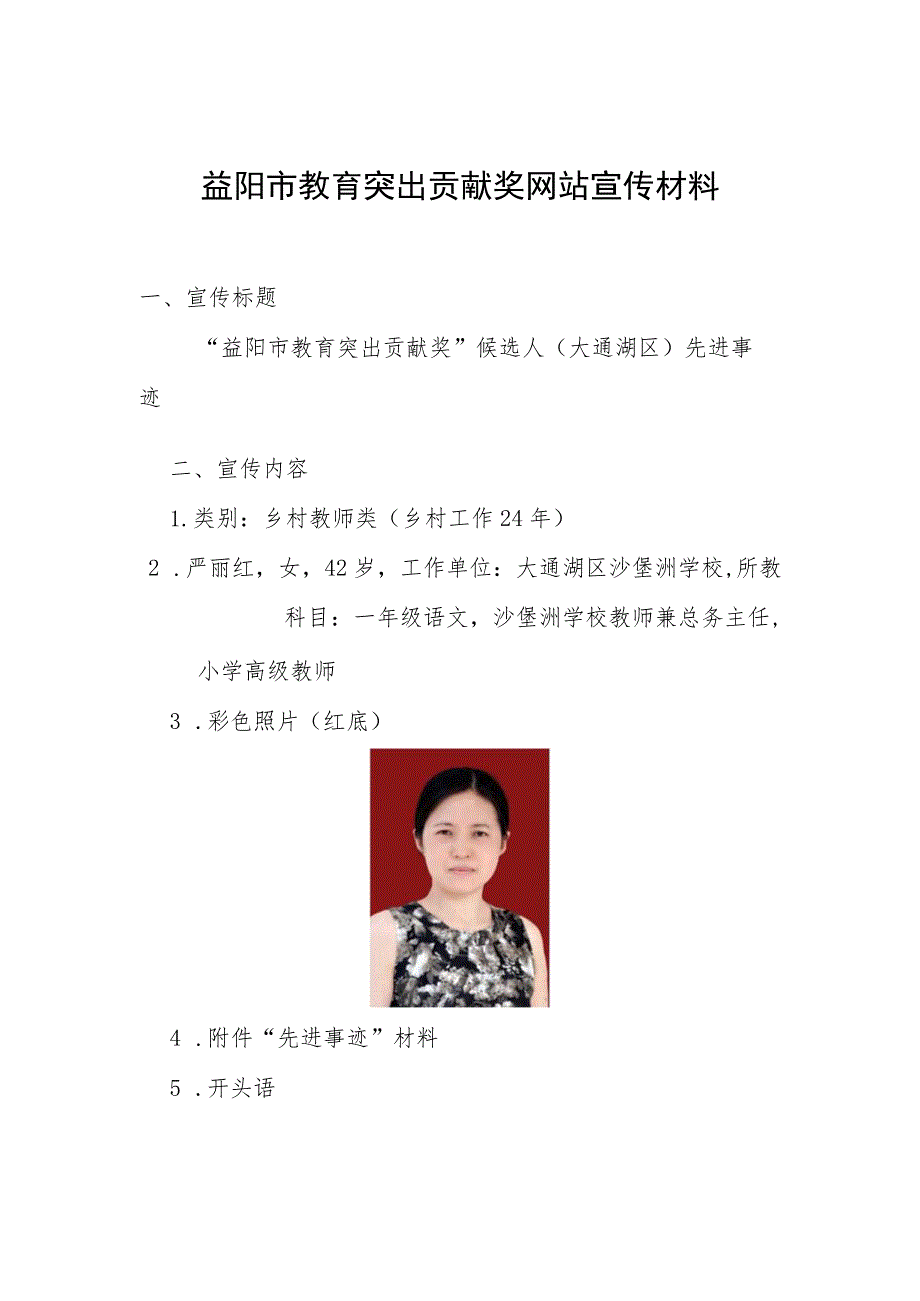 益阳市教育突出贡献奖网站宣传材料
一、宣传标题
“益阳市教育突出贡献奖”候选人（大通湖区）先进事
迹
二、宣传内容
1.类别：乡村教师类（乡村工作24年）
2 .严丽红，女，42岁，工作单位：大通湖区沙堡洲学校,所教
科目：一年级语文，沙堡洲学校教师兼总务主任,
小学高级教师
3 .彩色照片（红底）
4 .附件“先进事迹”材料
5 .开头语